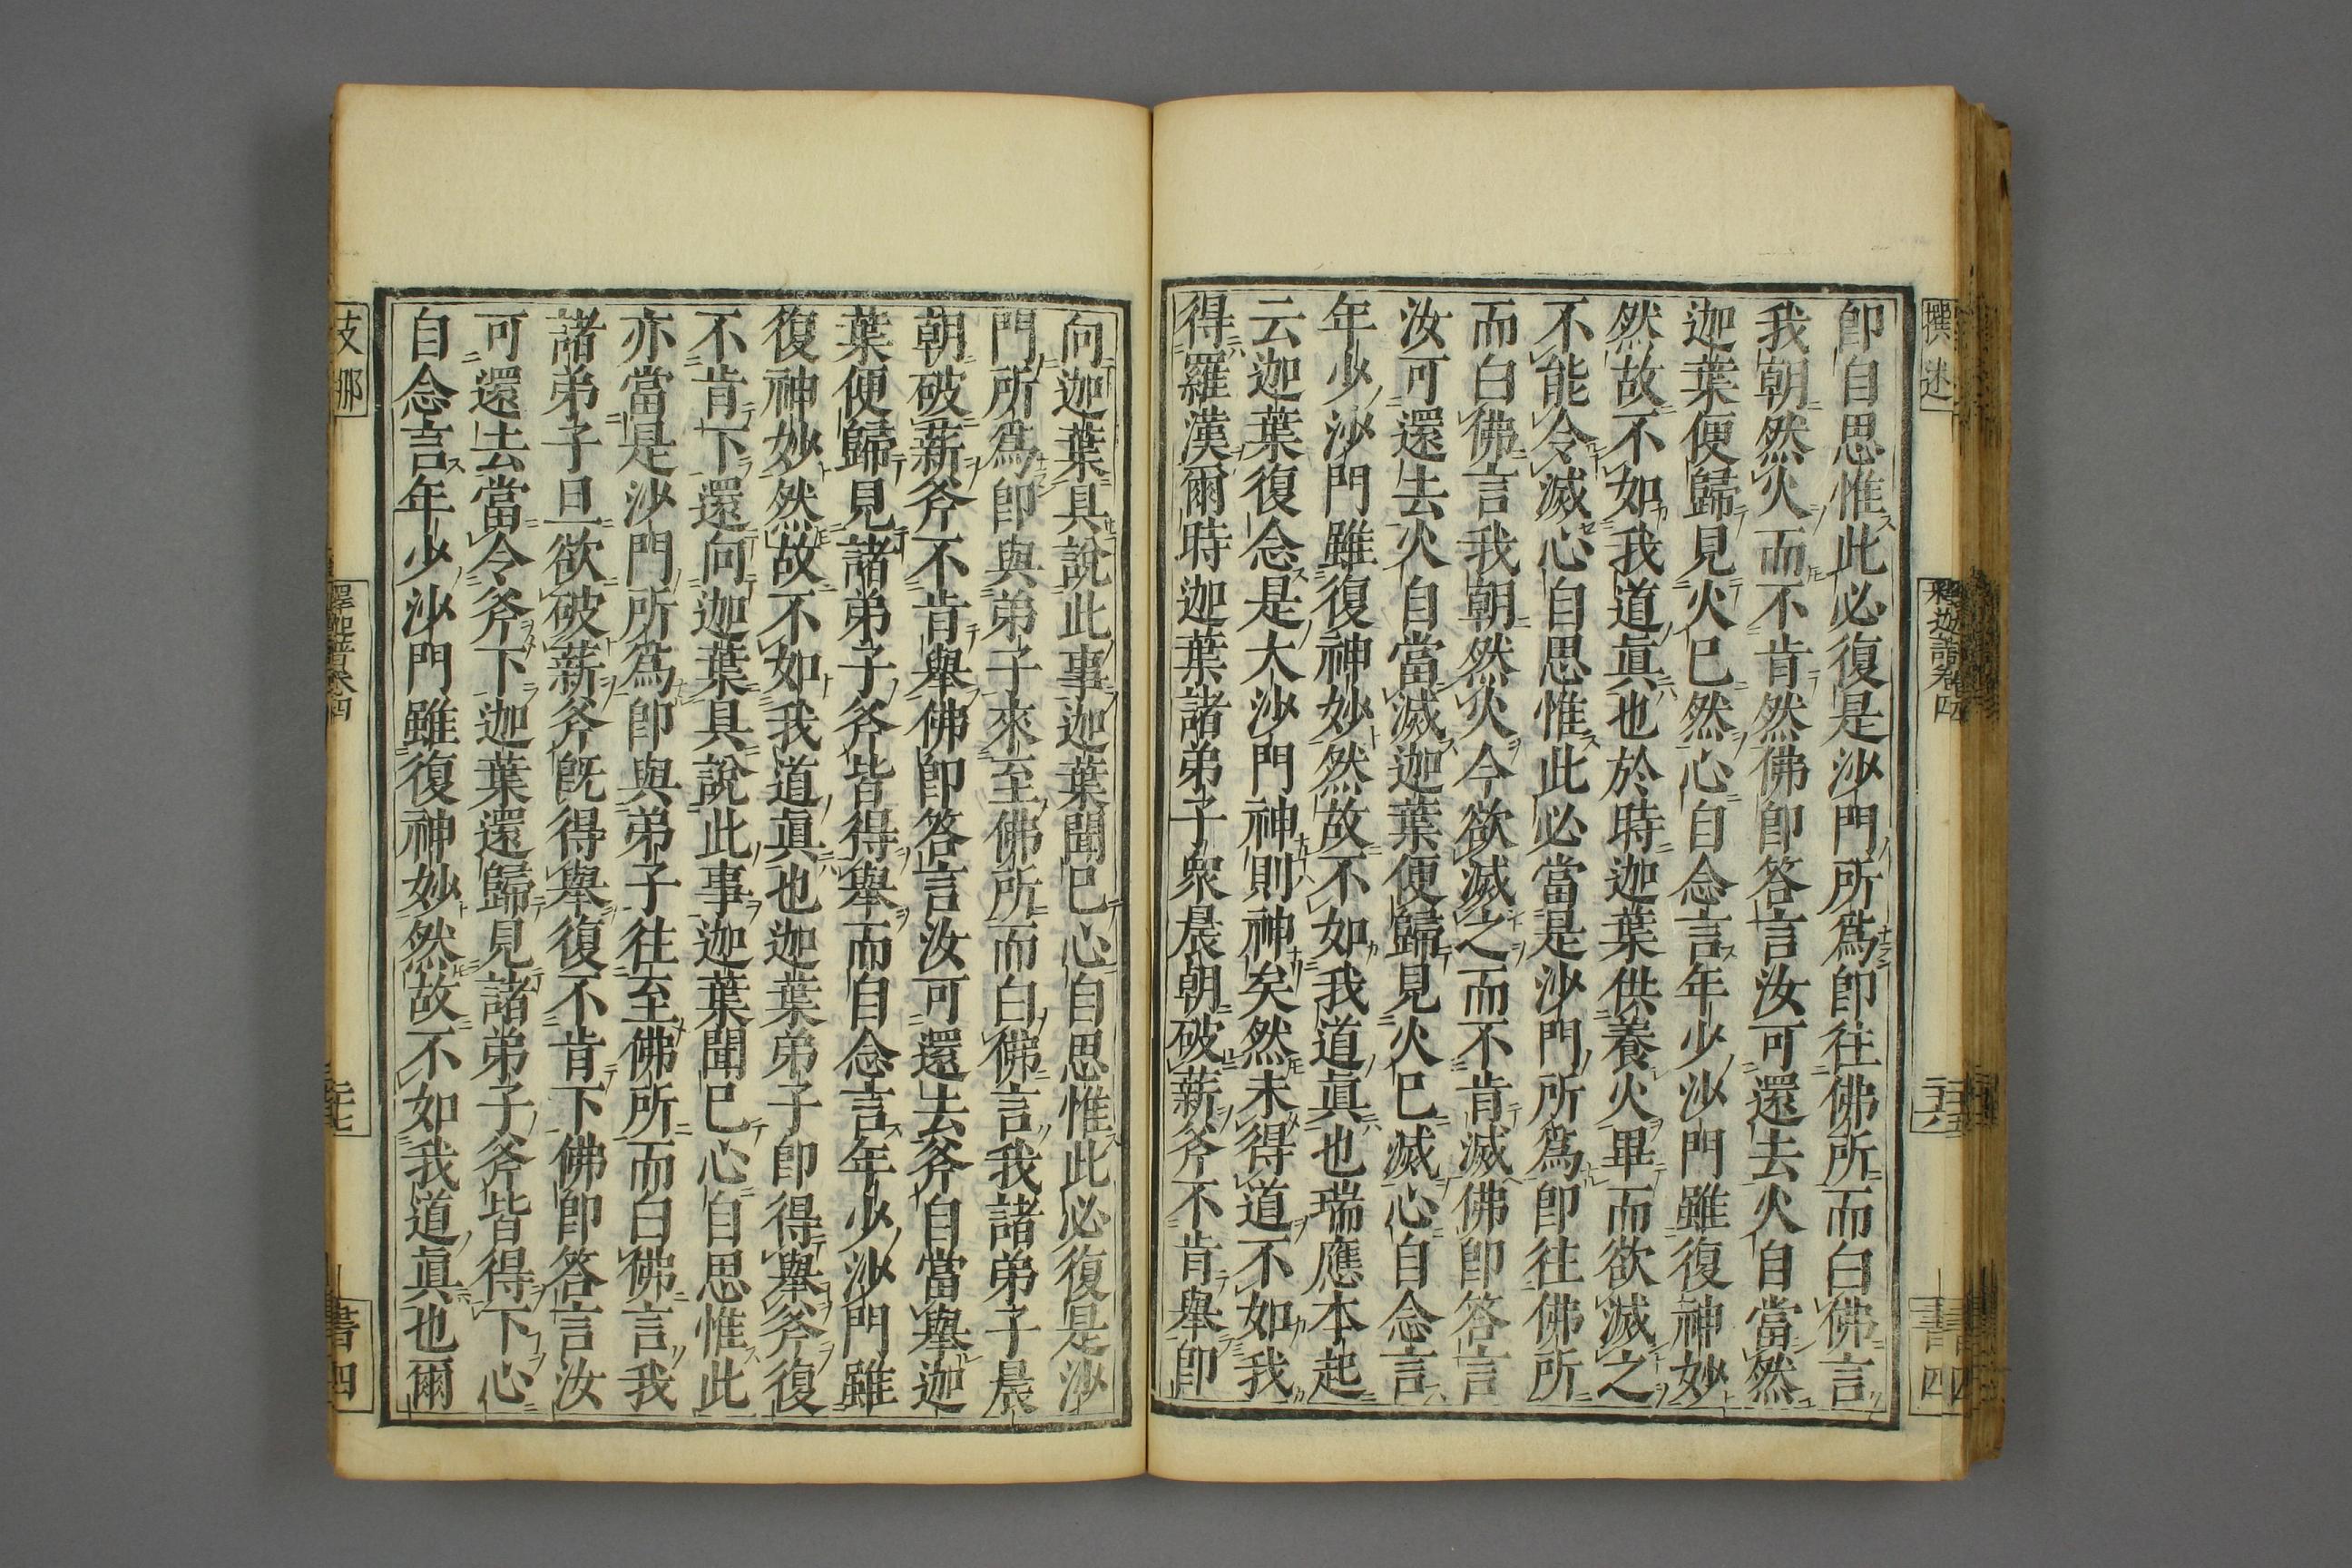 撰述
釋迦譜卷四
三十六
書四
即自思惟此必復是沙門所爲即往佛所而白佛言
我朝然火而不肯然佛即答言汝可還去火自當然
迦葉便歸見火已然心自念言年少沙門雖復神妙
然故不如我道眞也於時迦葉供養火畢而欲滅之
不能令滅心自思惟此必當是沙門所爲即往佛所
而白佛言我朝然火今欲滅之而不肯滅佛即答言
汝可還去火自當滅迦葉便歸見火已滅心自念言
年少沙門雖復神妙然故不如我道眞也瑞應本起
云迦葉復念是大沙門神則神矣然未得道不如我
得羅漢爾時迦葉諸弟子衆晨朝破薪斧不肯舉即
向迦葉具說此事迦葉聞已心自思惟此必復是沙
門所爲即與弟子來至佛所而白佛言我諸弟子晨
朝破薪斧不肯舉佛即答言汝可還去斧自當舉迦
葉便歸見諸弟子斧皆得舉而自念言年少沙門雖
復神妙然故不如我道眞也迦葉弟子即得舉斧復
不肯下還向迦葉具說此事迦葉聞已心自思惟此
亦當是沙門所爲即與弟子往至佛所而白佛言我
諸弟子旦欲破薪斧旣得舉復不肯下佛即答言汝
可還去當令斧下迦葉還歸見諸弟子斧皆得下心
自念言年少沙門雖復神妙然故不如我道眞也爾
支那
釋迦譜卷四
書四